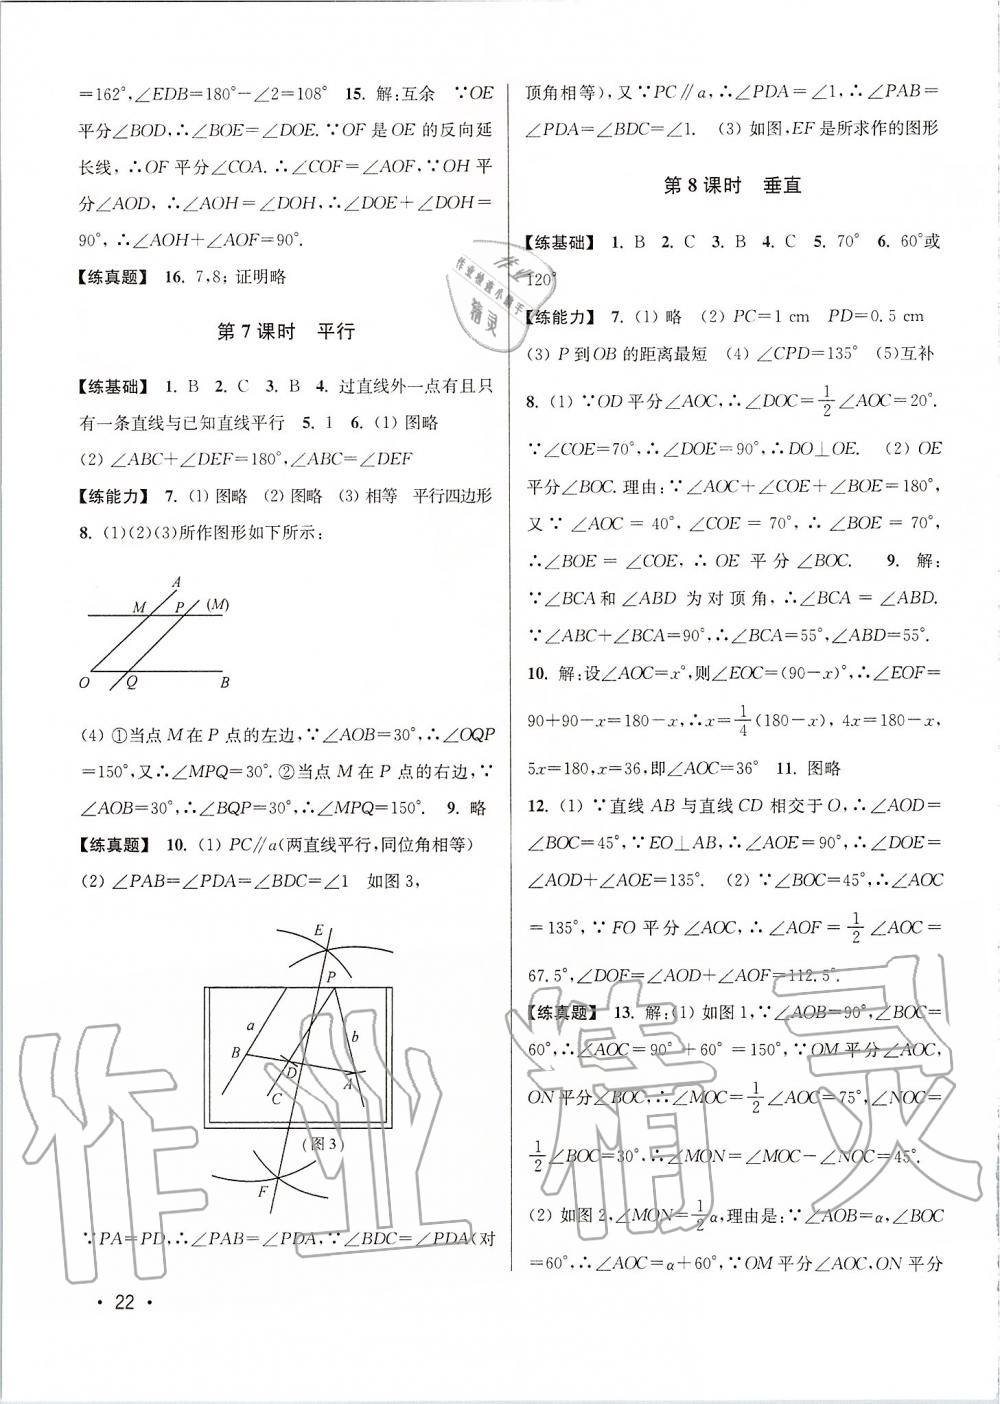 =162°,∠EDB=180°-∠2=108°  15. 解:互余  ∵OE
平分∠BOD,∴∠BOE=∠DOE.∵OF是OE的反向延
长线,∴OF平分∠COA.∴∠COF=∠AOF,∵OH平
分∠AOD,∴∠AOH=∠DOH,∴∠DOE+∠DOH=
90°,∴∠AOH+∠AOF=90°.
【练真题】 16. 7,8; 证明略
第7课时 平行
【练基础】 1. B 2. C 3. B 4. 过直线外一点有且只
有一条直线与已知直线平行 5. 1 6. (1) 图略
(2) ∠ABC+∠DEF=180°,∠ABC=∠DEF
【练能力】 7. (1) 图略 (2) 图略 (3) 相等 平行四边形
8. (1)(2)(3)所作图形如下所示:
A
M P (M)
O Q B
(4) ①当点M在P点的左边,∵∠AOB=30°,∴∠OQP
=150°,又∴∠MPQ=30°.②当点M在P点的右边,∵
∠AOB=30°,∴∠BQP=30°,∴∠MPQ=150°. 9. 略
【练真题】 10. (1) PC∥a(两直线平行,同位角相等)
(2) ∠PAB=∠PDA=∠BDC=∠1 如图3,
E
P
a
b
B
D
A
C
(图3)
F
∵PA=PD,∴∠PAB=∠PDA,∵∠BDC=∠PDA(对
• 22 •
顶角相等),又∵PC∥a,∴∠PDA=∠1,∴∠PAB=
∠PDA=∠BDC=∠1. (3) 如图,EF是所求作的图形
第8课时 垂直
【练基础】 1. B 2. C 3. B 4. C 5. 70° 6. 60°或
120°
【练能力】 7. (1) 略 (2) PC=1 cm PD=0.5 cm
(3) P到OB的距离最短 (4) ∠CPD=135° (5)互补
8. (1) ∵OD平分∠AOC,∴∠DOC=1/2∠AOC=20°.
∵∠COE=70°,∴∠DOE=90°,∴DO⊥OE. (2) OE
平分∠BOC.理由:∵∠AOC+∠COE+∠BOE=180°,
又∵∠AOC=40°,∠COE=70°,∴∠BOE=70°,
∴∠BOE=∠COE,∴OE平分∠BOC. 9. 解:
∵∠BCA和∠ABD为对顶角,∴∠BCA=∠ABD.
∵∠ABC+∠BCA=90°,∴∠BCA=55°,∠ABD=55°.
10. 解:设∠AOC=x°,则∠EOC=(90-x)°,∴∠EOF=
90+90-x=180-x,∴x=1/4(180-x), 4x=180-x,
5x=180,x=36,即∠AOC=36° 11. 图略
12. (1) ∵直线AB与直线CD相交于O,∴∠AOD=
∠BOC=45°,∵EO⊥AB,∴∠AOE=90°,∴∠DOE=
∠AOD+∠AOE=135°. (2) ∵∠BOC=45°,∴∠AOC
=135°,∵FO平分∠AOC,∴∠AOF=1/2∠AOC=
67.5°,∠DOF=∠AOD+∠AOF=112.5°.
【练真题】 13. 解:(1) 如图1,∵∠AOB=90°,∠BOC=
60°,∴∠AOC=90°+60°=150°,∵OM平分∠AOC,
ON平分∠BOC,∴∠MOC=1/2∠AOC=75°,∠NOC=
1/2∠BOC=30°,∴∠MON=∠MOC-∠NOC=45°.
(2) 如图2,∠MON=1/2α,理由是:∵∠AOB=α,∠BOC
=60°,∴∠AOC=α+60°,∵OM平分∠AOC,ON平分
作业
作业检查小助手
精灵
作业精灵